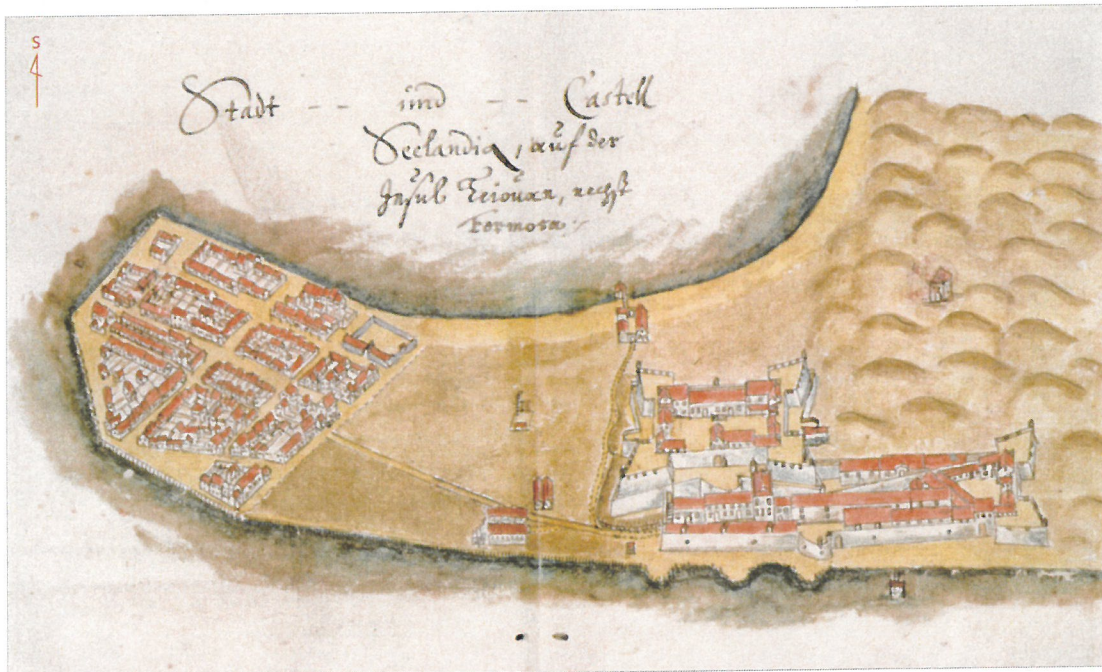 S
Stadt -- und -- Castell
Seelandia, auf der
Insul Teiouan, nechst
Formosa